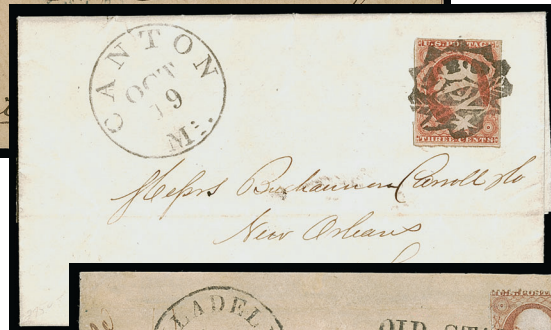 CANTON
OCT
19
M:.
U.S. POSTAGE
THREE CENTS
Messrs Buchannon Carroll & Co
New Orleans
LADEL